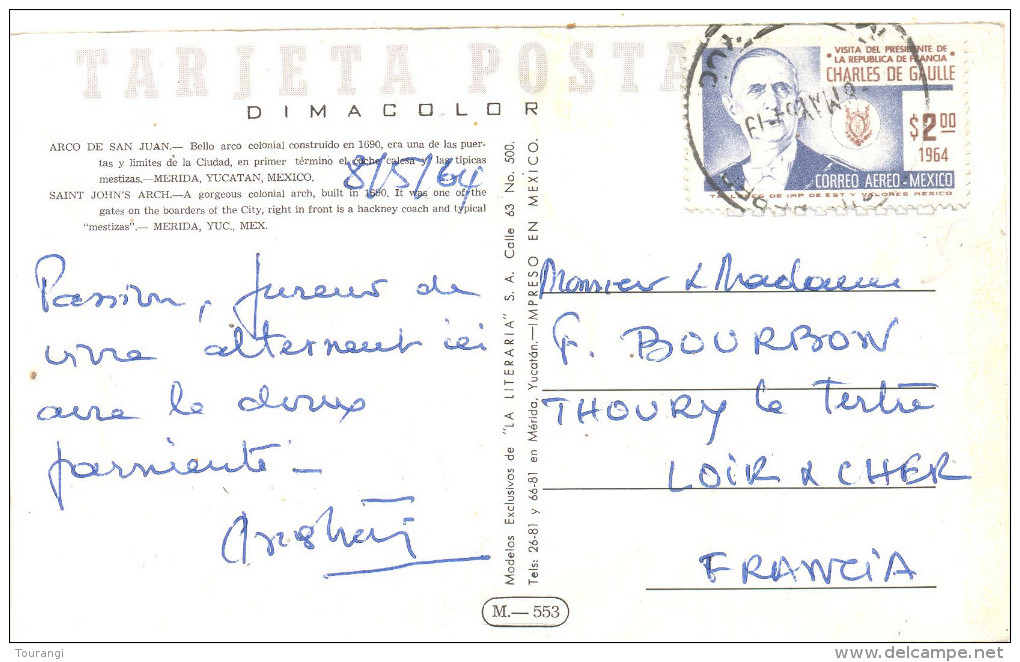 TARJETA POSTA
DIMACOLOR
ARCO DE SAN JUAN.— Bello arco colonial construido en 1690, era una de las puer-
tas y limites de la Ciudad, en primer término el coche calesa y las tipicas
mestizas.—MERIDA, YUCATAN, MEXICO.
SAINT JOHN'S ARCH.—A gorgeous colonial arch, built in 1690. It was one of the
gates on the boarders of the City, right in front is a hackney coach and typical
"mestizas".— MERIDA, YUC., MEX.
8/5/64
Passion, fureur de
vivre alternent ici
avec le doux
farniente —
Modelos Exclusivos de "LA LITERARIA" S. A. Calle 63 No. 500.
Tels: 26-81 y 66-81 en Mérida, Yucatán.—IMPRESO EN MEXICO.
M.— 553
VISITA DEL PRESIDENTE DE
LA REPUBLICA DE FRANCIA
CHARLES DE GAULLE
$2.00
1964
CORREO AEREO - MEXICO
TALLERES DE IMP. DE EST. Y VALORES MEXICO
Monsieur & Madame
F. BOURBON
THOURY le Tertre
LOIR & CHER
FRANCIA
Tourangi
www.delcampe.net